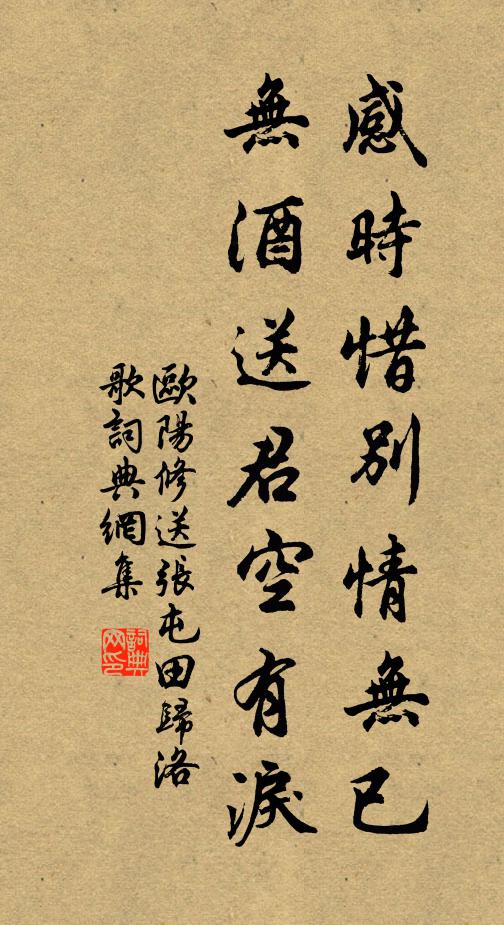 感時惜別情無已
無酒送君空有淚
歐陽修送張屯田歸洛
歌詞典網集
詞典网印